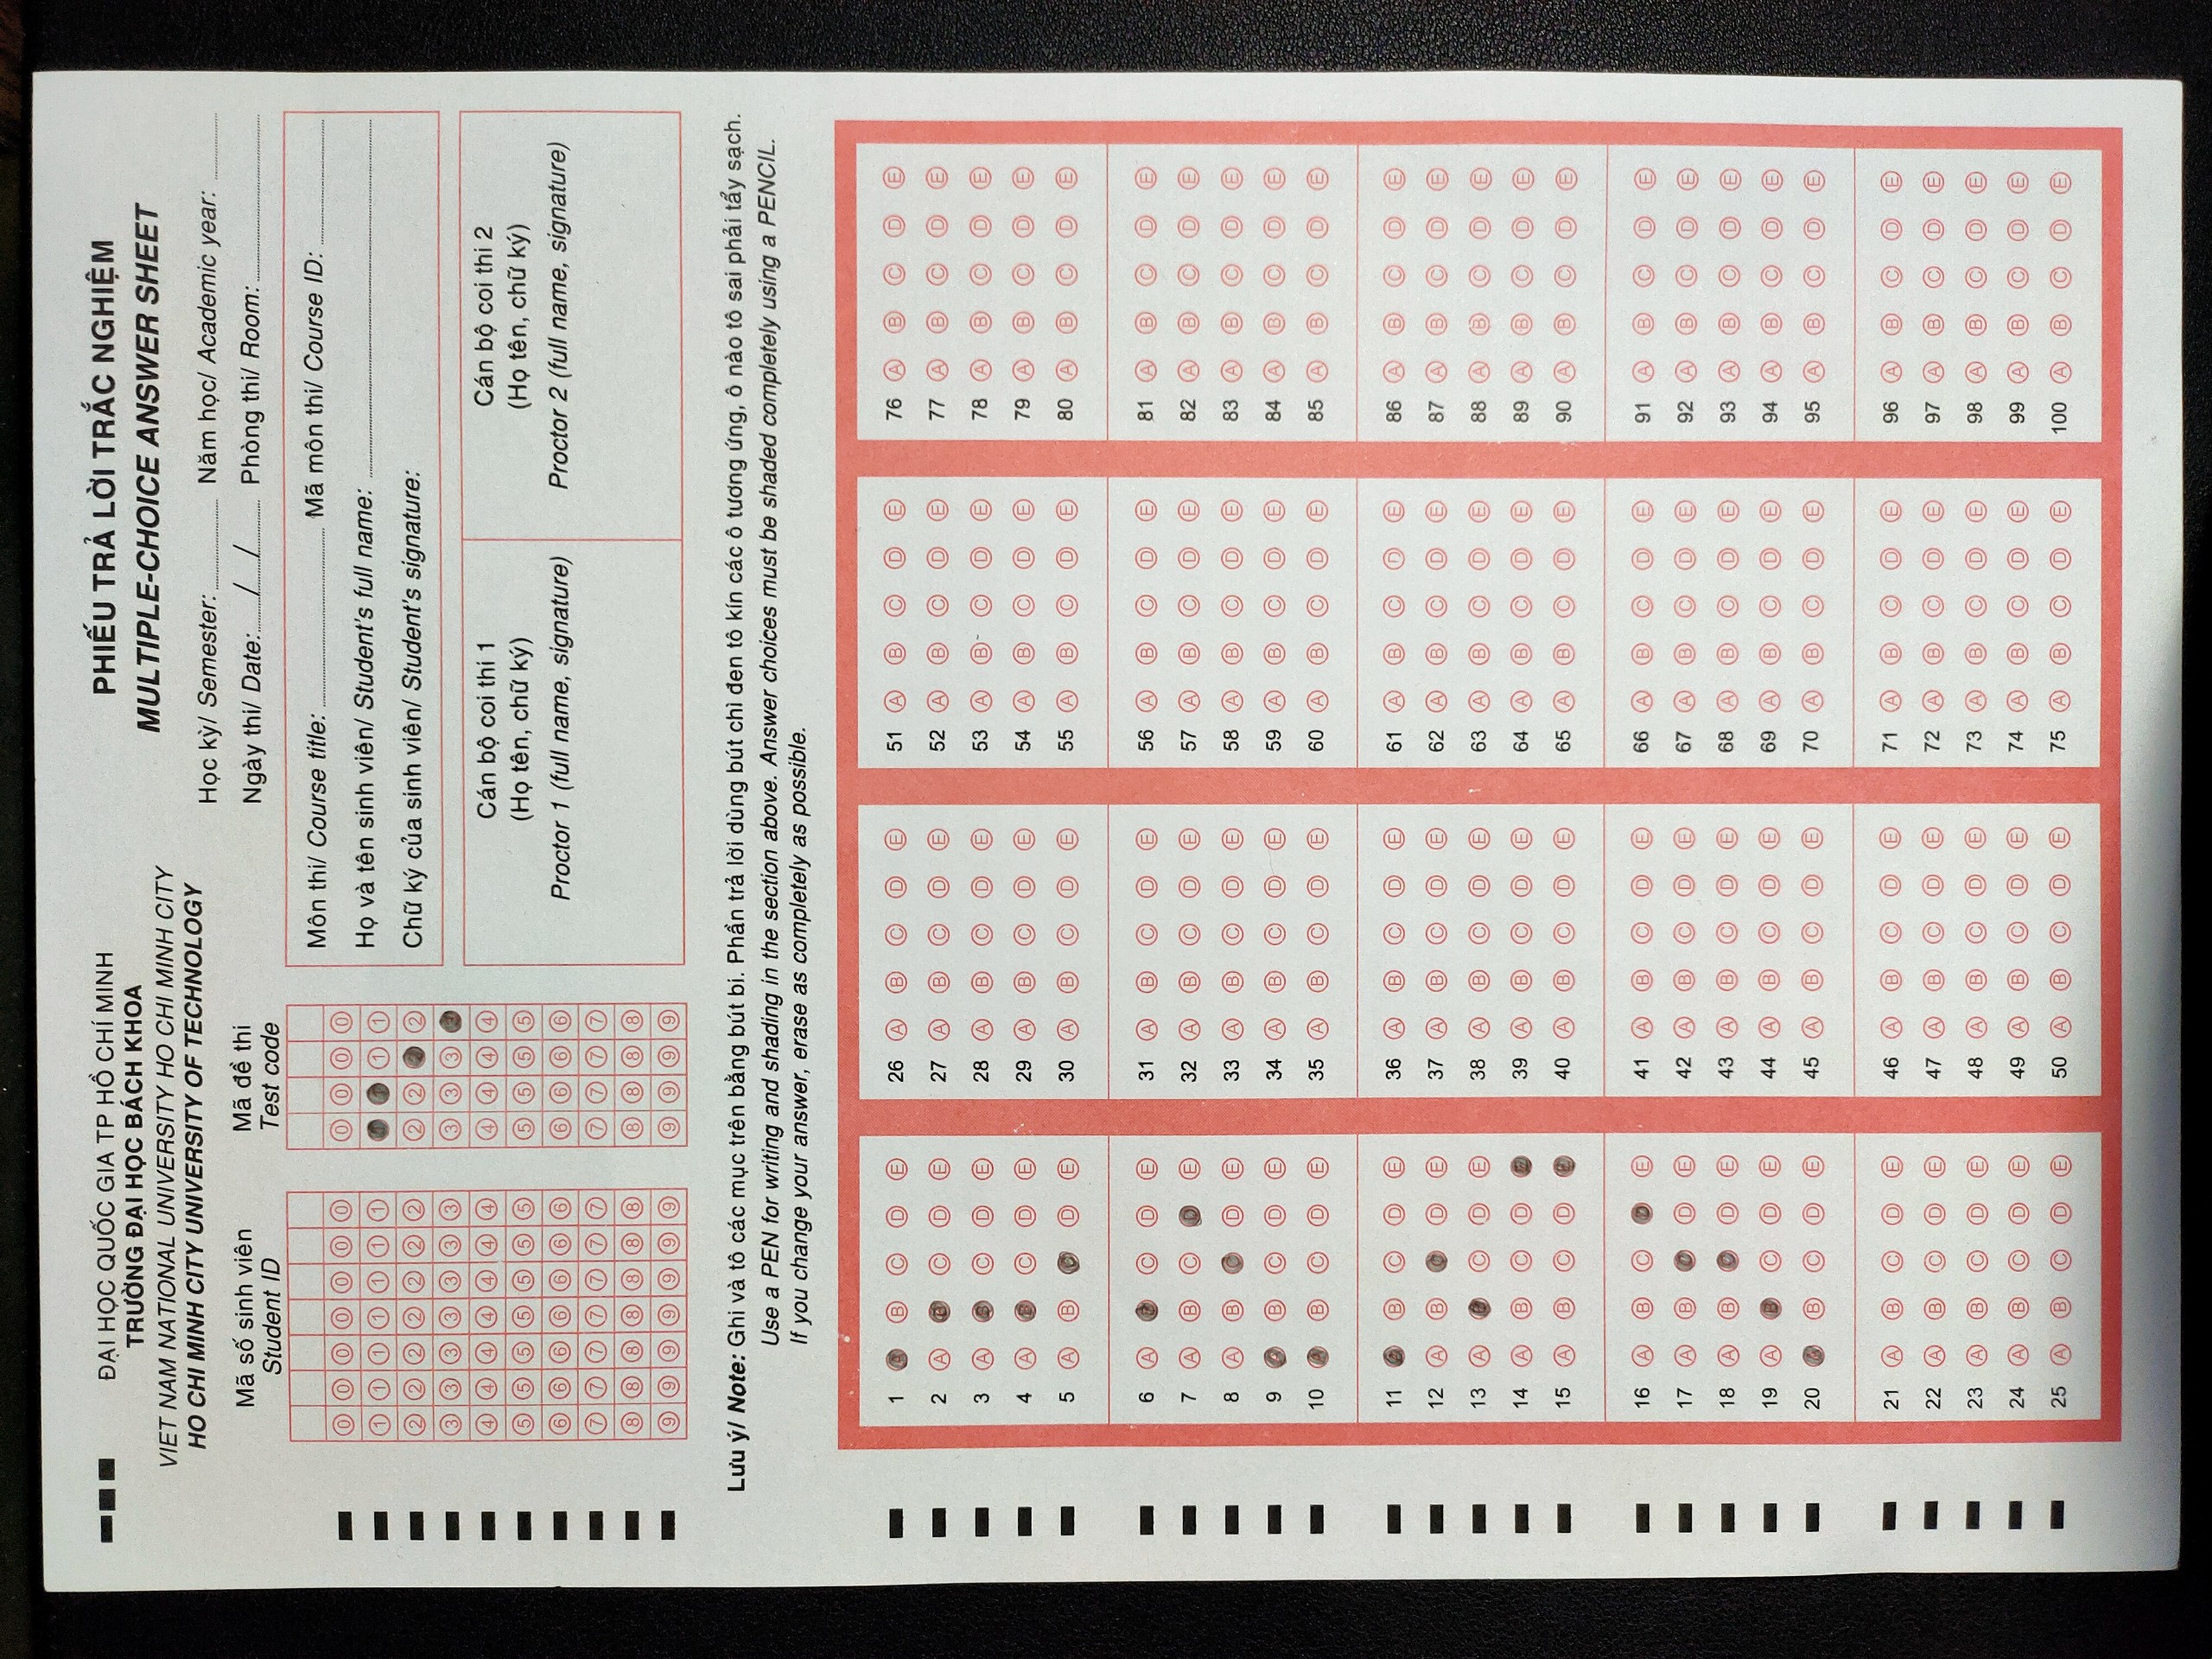 ĐẠI HỌC QUỐC GIA TP HỒ CHÍ MINH
TRƯỜNG ĐẠI HỌC BÁCH KHOA
VIET NAM NATIONAL UNIVERSITY HO CHI MINH CITY
HO CHI MINH CITY UNIVERSITY OF TECHNOLOGY
PHIẾU TRẢ LỜI TRẮC NGHIỆM
MULTIPLE-CHOICE ANSWER SHEET
Học kỳ/ Semester: Năm học/ Academic year:
Ngày thi/ Date: / / Phòng thi/ Room:
Mã số sinh viên
Student ID
Mã đề thi
Test code
0 0 0 0 0 0 0 0 0 0 0
1 1 1 1 1 1 1 1 1 1 1
2 2 2 2 2 2 2 2 2 2 2
3 3 3 3 3 3 3 3 3 3 3
4 4 4 4 4 4 4 4 4 4 4
5 5 5 5 5 5 5 5 5 5 5
6 6 6 6 6 6 6 6 6 6 6
7 7 7 7 7 7 7 7 7 7 7
8 8 8 8 8 8 8 8 8 8 8
9 9 9 9 9 9 9 9 9 9 9
Môn thi/ Course title: Mã môn thi/ Course ID:
Họ và tên sinh viên/ Student's full name:
Chữ ký của sinh viên/ Student's signature:
Cán bộ coi thi 1
(Họ tên, chữ ký)
Proctor 1 (full name, signature)
Cán bộ coi thi 2
(Họ tên, chữ ký)
Proctor 2 (full name, signature)
Lưu ý/ Note: Ghi và tô các mục trên bằng bút bi. Phần trả lời dùng bút chì đen tô kín các ô tương ứng, ô nào tô sai phải tẩy sạch.
Use a PEN for writing and shading in the section above. Answer choices must be shaded completely using a PENCIL.
If you change your answer, erase as completely as possible.
1 A B C D E
2 A B C D E
3 A B C D E
4 A B C D E
5 A B C D E
6 A B C D E
7 A B C D E
8 A B C D E
9 A B C D E
10 A B C D E
11 A B C D E
12 A B C D E
13 A B C D E
14 A B C D E
15 A B C D E
16 A B C D E
17 A B C D E
18 A B C D E
19 A B C D E
20 A B C D E
21 A B C D E
22 A B C D E
23 A B C D E
24 A B C D E
25 A B C D E
26 A B C D E
27 A B C D E
28 A B C D E
29 A B C D E
30 A B C D E
31 A B C D E
32 A B C D E
33 A B C D E
34 A B C D E
35 A B C D E
36 A B C D E
37 A B C D E
38 A B C D E
39 A B C D E
40 A B C D E
41 A B C D E
42 A B C D E
43 A B C D E
44 A B C D E
45 A B C D E
46 A B C D E
47 A B C D E
48 A B C D E
49 A B C D E
50 A B C D E
51 A B C D E
52 A B C D E
53 A B C D E
54 A B C D E
55 A B C D E
56 A B C D E
57 A B C D E
58 A B C D E
59 A B C D E
60 A B C D E
61 A B C D E
62 A B C D E
63 A B C D E
64 A B C D E
65 A B C D E
66 A B C D E
67 A B C D E
68 A B C D E
69 A B C D E
70 A B C D E
71 A B C D E
72 A B C D E
73 A B C D E
74 A B C D E
75 A B C D E
76 A B C D E
77 A B C D E
78 A B C D E
79 A B C D E
80 A B C D E
81 A B C D E
82 A B C D E
83 A B C D E
84 A B C D E
85 A B C D E
86 A B C D E
87 A B C D E
88 A B C D E
89 A B C D E
90 A B C D E
91 A B C D E
92 A B C D E
93 A B C D E
94 A B C D E
95 A B C D E
96 A B C D E
97 A B C D E
98 A B C D E
99 A B C D E
100 A B C D E